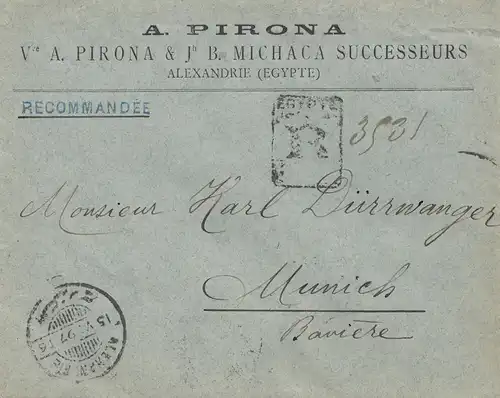 A. PIRONA
Vve A. PIRONA & Jn B. MICHACA SUCCESSEURS
ALEXANDRIE (EGYPTE)
RECOMMANDÉE
EGYPTE
3531
Monsieur Karl Dürrwanger
Munich
Bavière